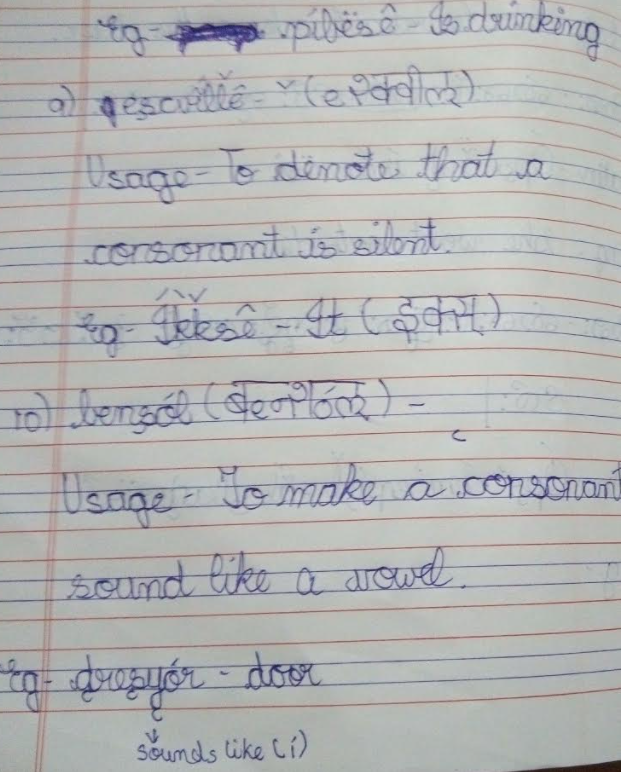 Eg- pibësê - Is drinking
9) escuéllê - ˇ (एस्क्वील)
Usage - To denote that a
consonant is silent.
Eg- Îkksê - It (इक्स)
10) bensól ( ) - ͜
Usage - To make a consonant
sound like a vowel.
Eg- drezyór - door
sounds like (i)